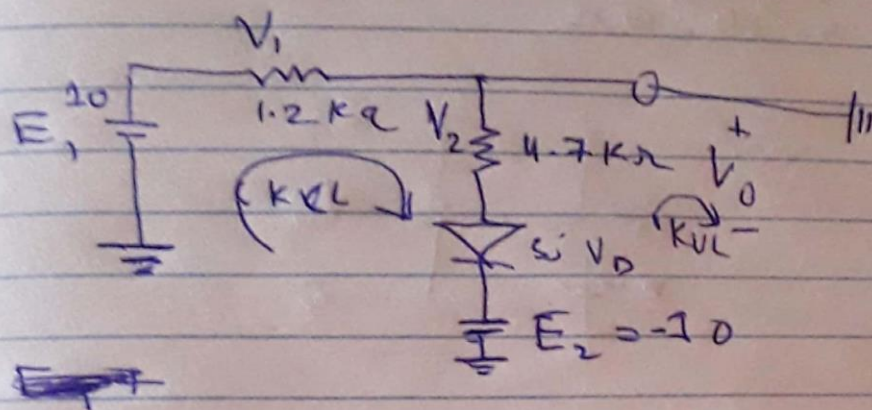 V₁
20
E₁
1.2 KΩ
V₂
4.7 KΩ
+
V₀
-
KVL
KVL
Si V_D
E₂ = -10